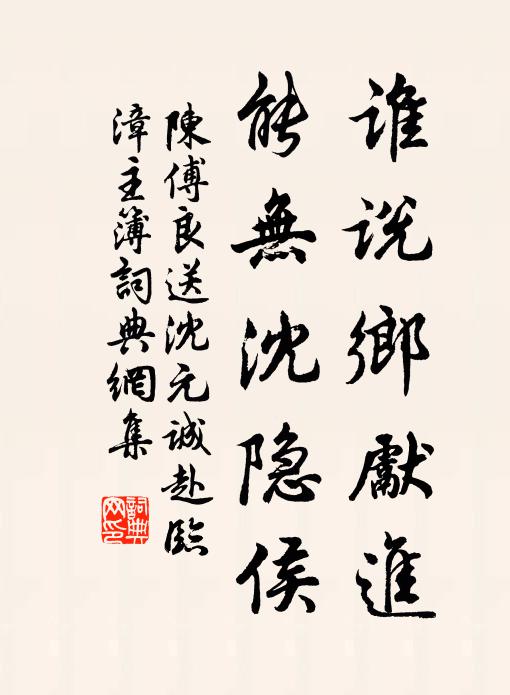 谁说鄉獻進
能無沈隐侯
陳傅良送沈元诚赴臨
漳主簿詞典網集
詞典网印